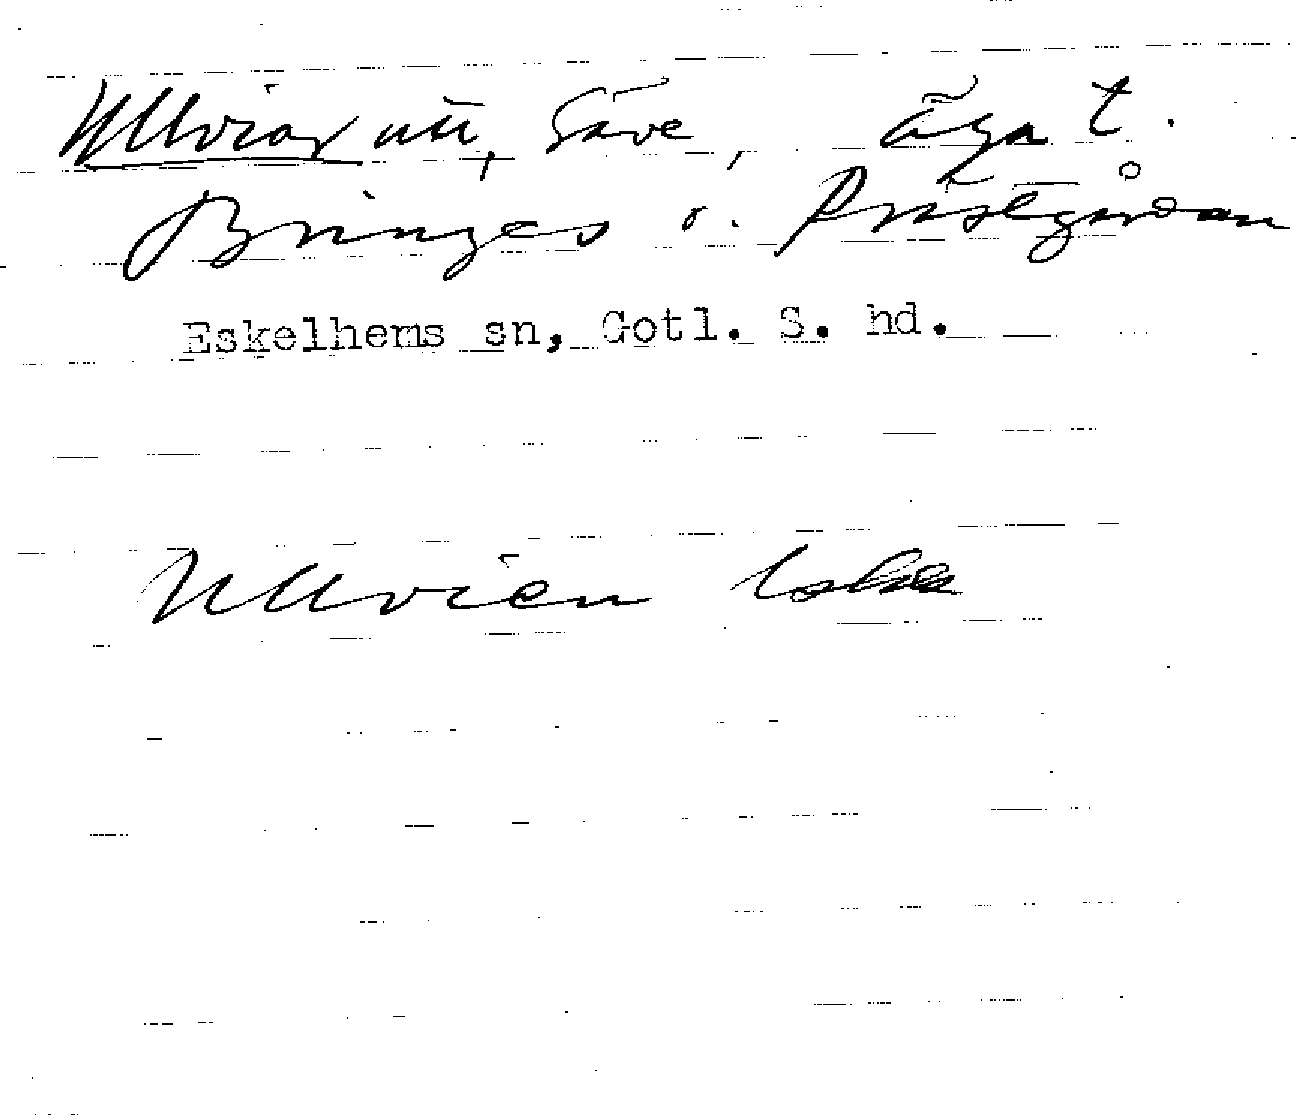 Ullviar utı, Säve, äga t.
Bringes o. Prästgården
Eskelhems sn, Gotl. S. hd.
Ullvien